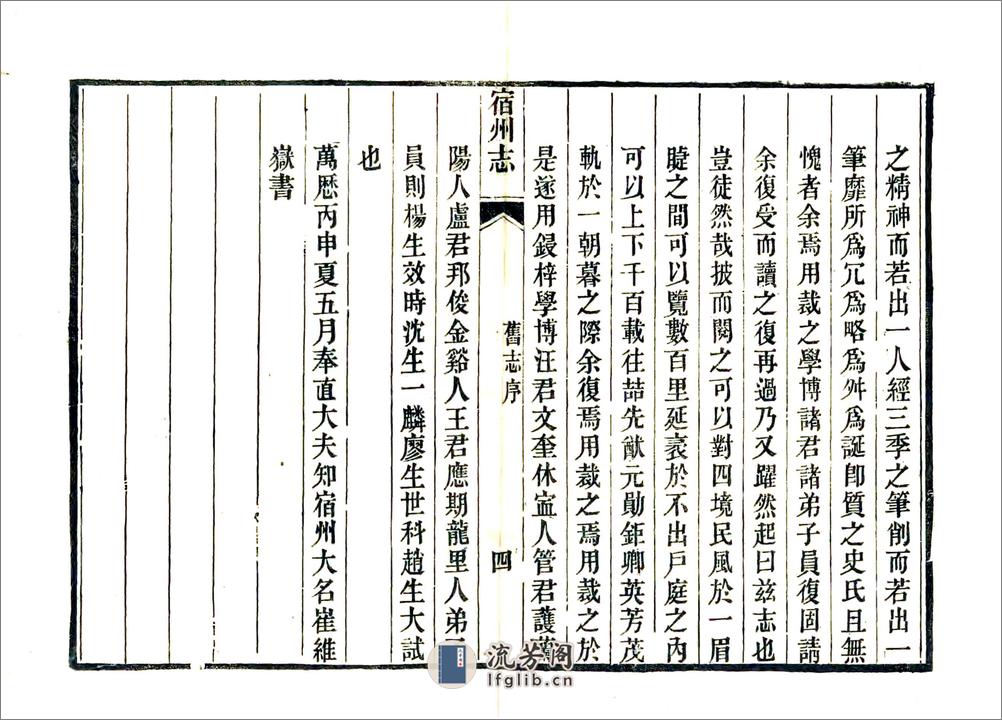 之精神而若出一人經三季之筆削而若出一
筆靡所爲冗爲略爲舛爲誕卽質之史氏且無
愧者余焉用裁之學博諸君諸弟子員復固請
余復受而讀之復再過乃又躍然起曰兹志也
豈徒然哉披而閱之可以對四境民風於一眉
睫之間可以覽數百里延袤於不出戶庭之內
可以上下千百載往喆先猷元勛鉅卿英芳茂
軌於一朝暮之際余復焉用裁之焉用裁之於
是遂用鋟梓學博汪君文奎休寍人管君護
宿州志
舊志序
四
陽人盧君邦俊金谿人王君應期龍里人弟
員則楊生效時沈生一麟廖生世科趙生大試
也
萬厯丙申夏五月奉直大夫知宿州大名崔維
嶽書
流芳阁
lfglib.cn